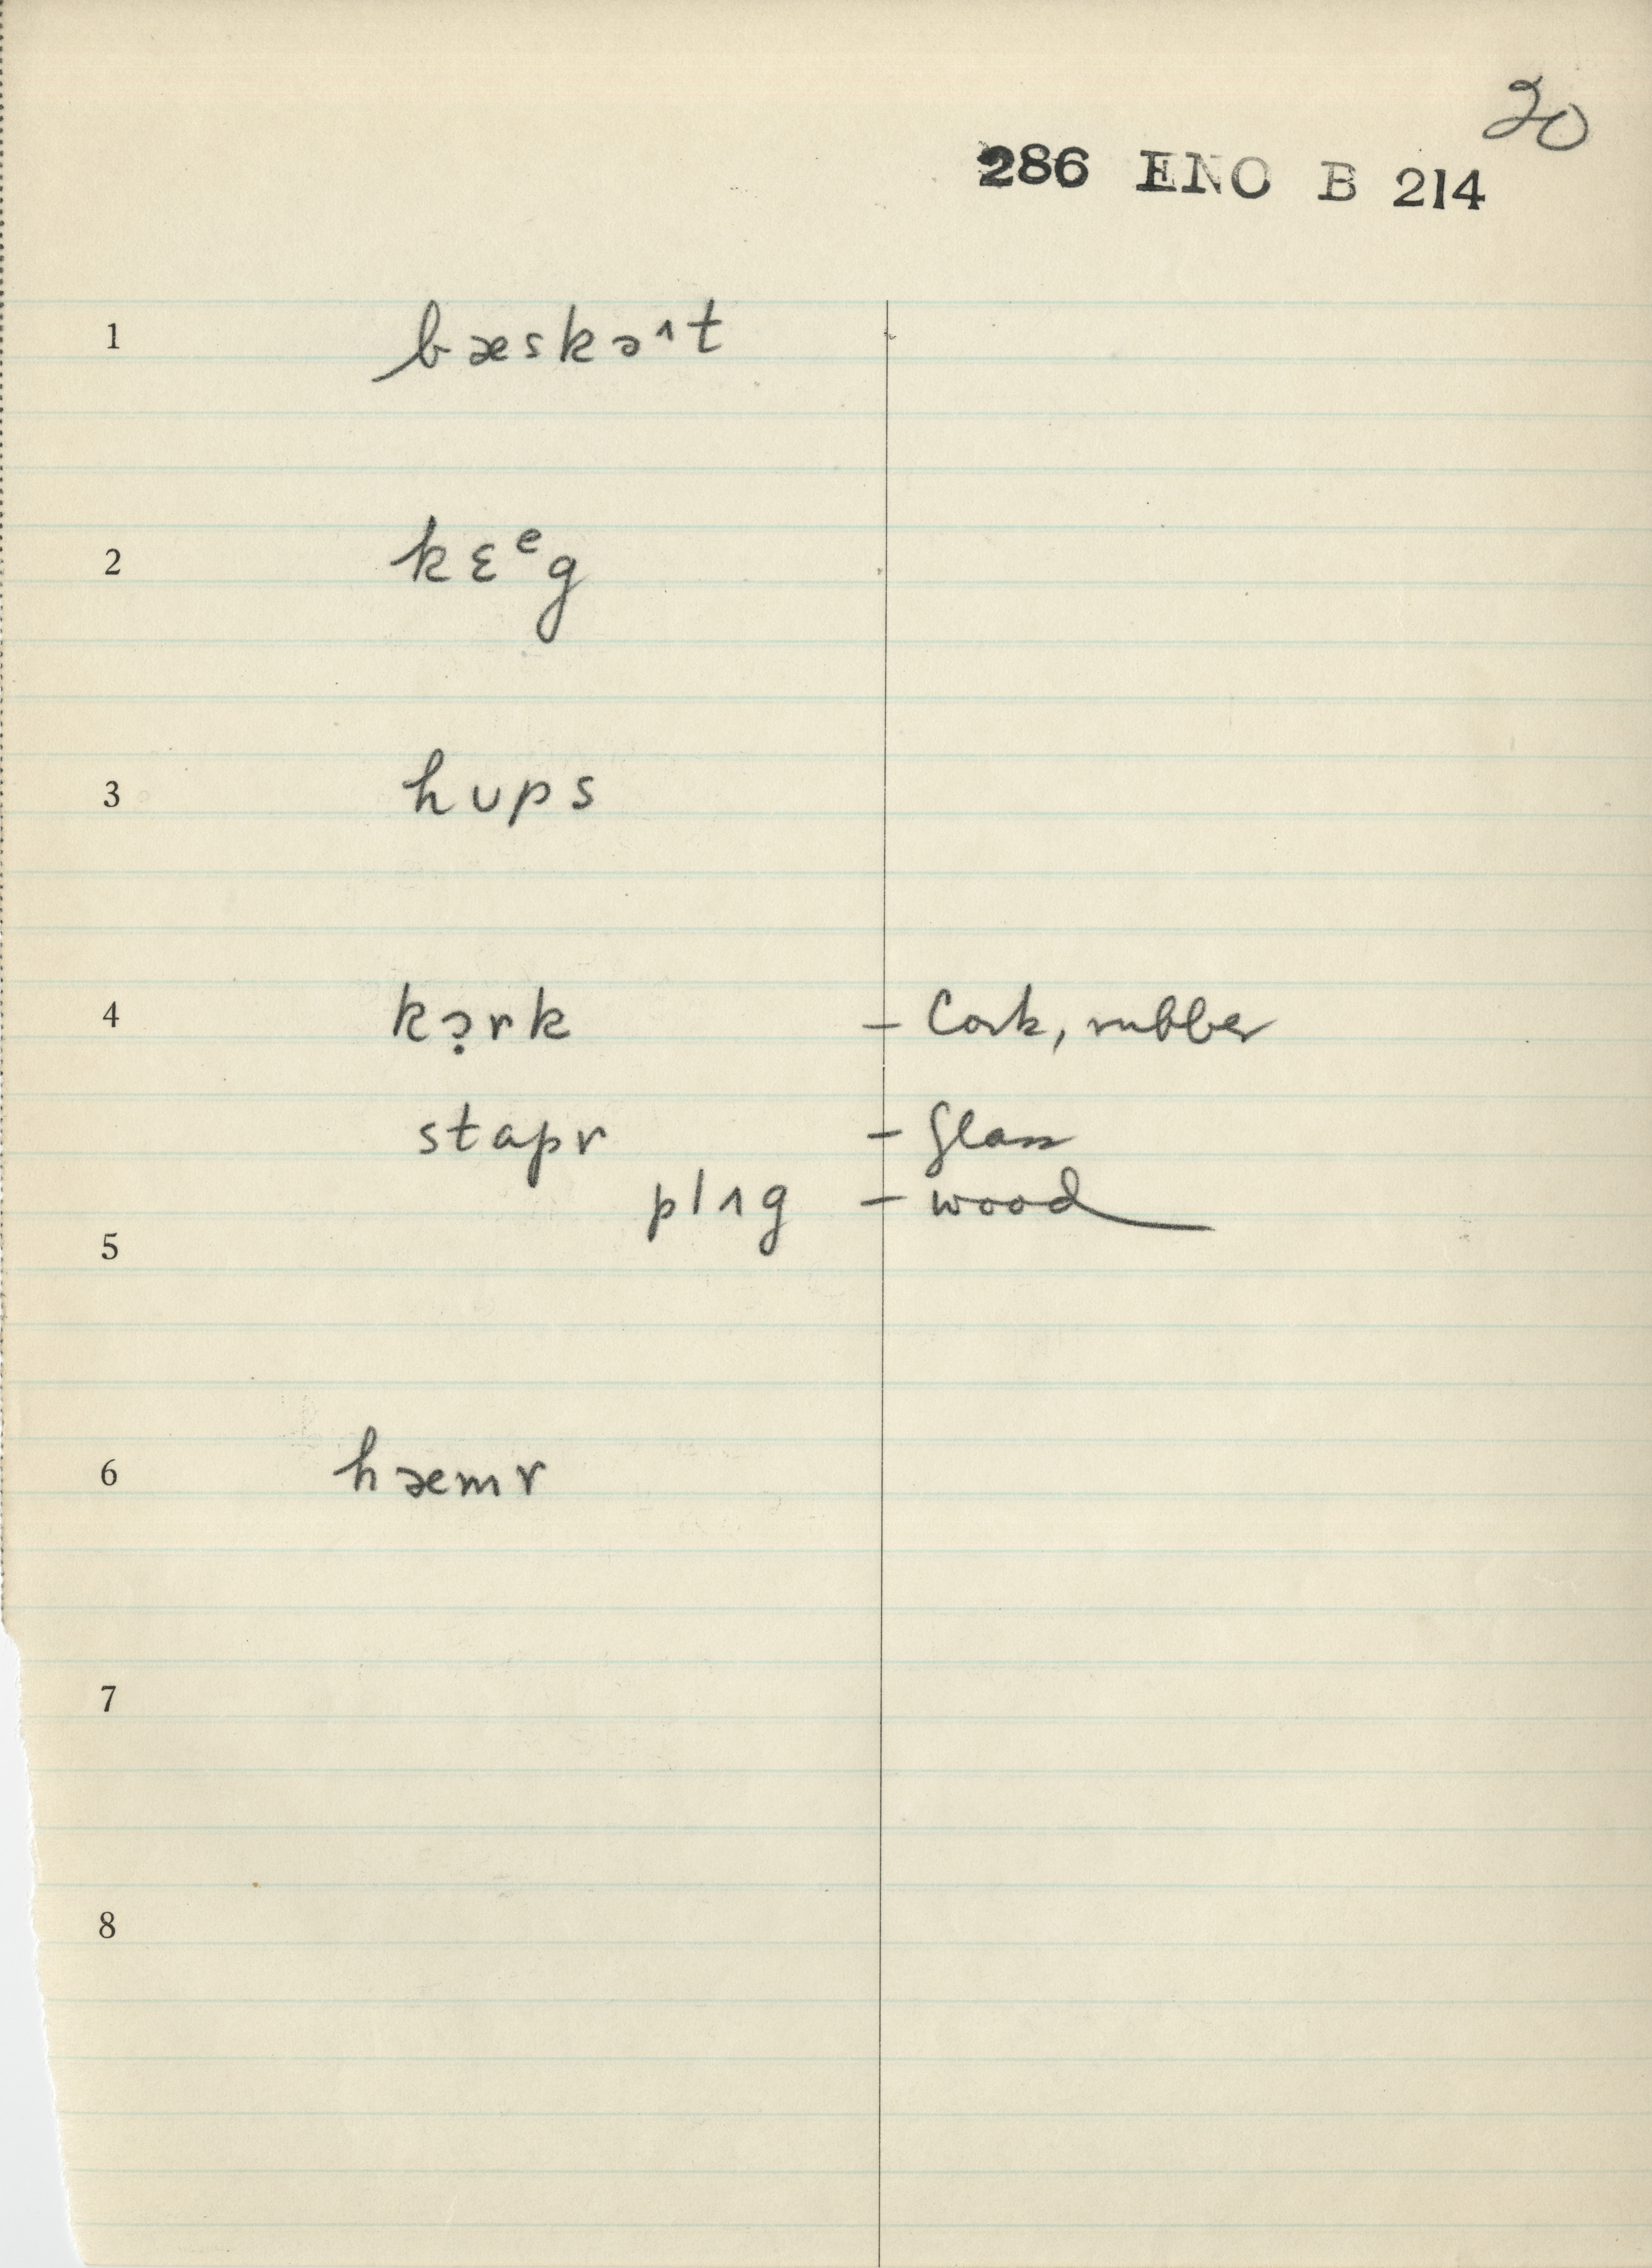 20
286 ENO B 214
1 bæskə^t
2 kɛᵉg
3 hʊps
4 kɔ̣rk – Cork, rubber
stapr – glass
plʌg – wood
5
6 hæmr
7
8